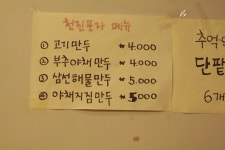 천진포자 메뉴
① 고기만두 ₩4.000
② 부추야채만두 ₩4.000
③ 삼선해물만두 ₩5.000
④ 야채지짐만두 ₩5000
추억의
단팥
6개